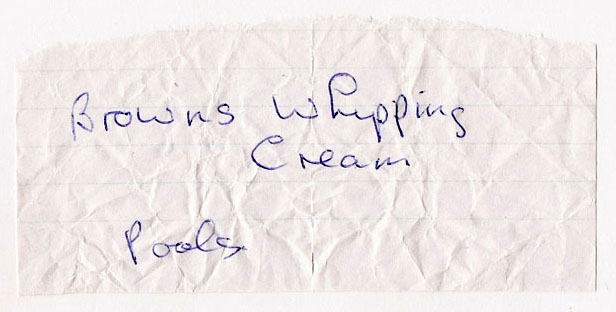 Browns Whipping
Cream
Pools